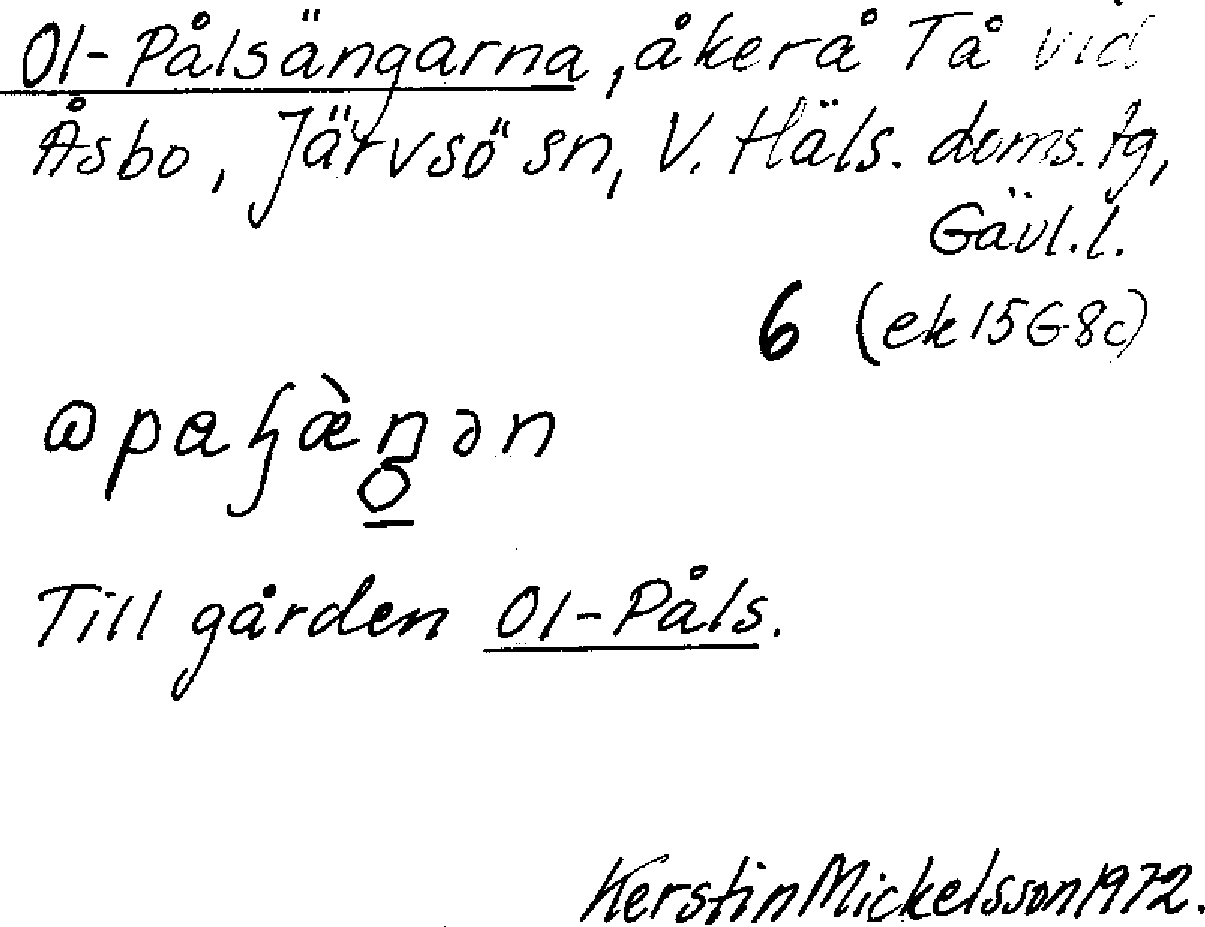 Ol-Pålsängarna, åker å Tå vid
Åsbo, Järvsö sn, V. Häls. doms. tg,
Gävl. l.
6 (ek 15G8c)
Till gården Ol-Påls.
Kerstin Mickelsson 1972.